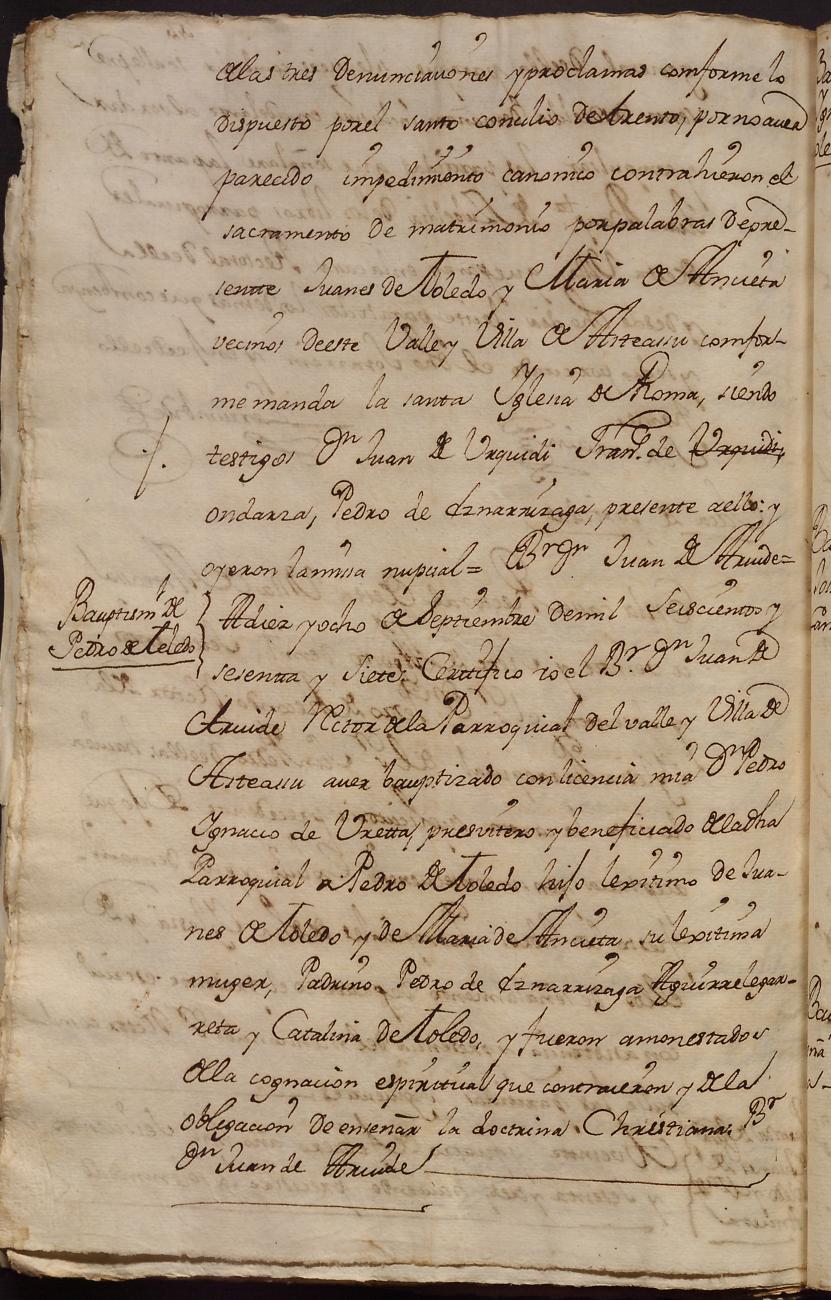 de las tres denunciaciones y proclamas comforme lo
dispuesto por el santo concilio de trento, por no aver
parecido impedimento canonico contrahieron el
sacramento de matrimonio por palabras de pre-
sente Juanes de Toledo y Maria de Ancieta
vecinos de este Valle y Villa de Asteassu comfor-
me manda la santa Yglesia de Roma, siendo
testigos Dn Juan de Urquidi Fran.co de Urquidi,
ondarza, Pedro de Iznarrizaga, presente a ello: y
oyeron la missa nupcial= Br Dn Juan de Aruide=
Bauptism.o de
Pedro de Toledo
A diez y ocho de Septiembre de mil seiscientos y
sesenta y siete: Certifico io el Br. Dn Juan de
Aruide Rector de la Parroquial del valle y Villa de
Asteassu aver bauptizado con licencia mia Dn Pedro
Ignacio de Uretta, presvitero y beneficiado de la dha
Parroquial a Pedro de Toledo hijo lexitimo de Jua-
nes de Toledo y de Maria de Ancieta su lexitima
muger, Padrino Pedro de Iznarrizaga Aguirrelegar-
reta y Catalina de Toledo, y fueron amonestados
de la cognacion espiritual que contraieron y de la
obligacion de enseñar la doctrina Christiana: Br
Dn Juan de Aruide